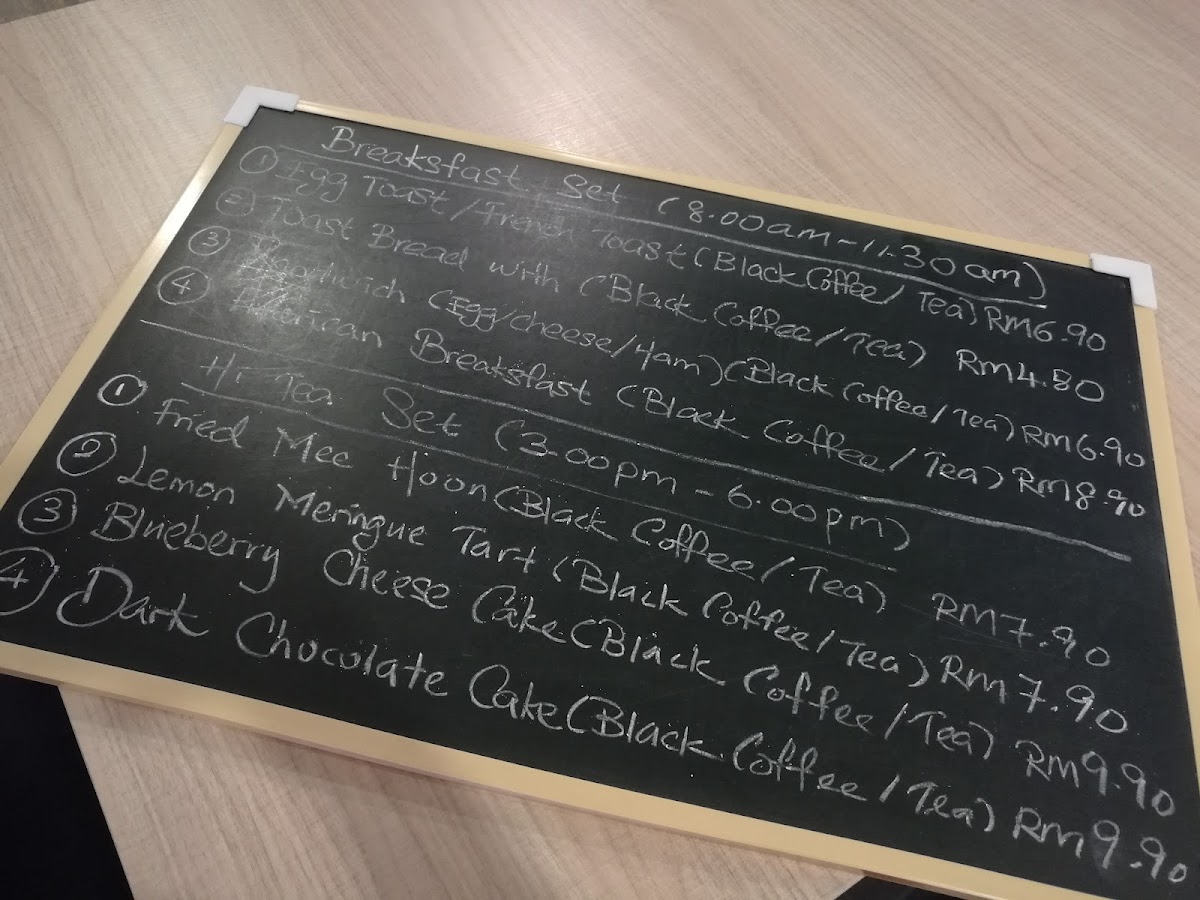 Breaksfast Set (8.00am-11.30am)
① Egg Toast/French Toast (Black Coffee/Tea) RM6.90
② Toast Bread with (Black Coffee/Tea) RM4.80
③ Sandwich (Egg/cheese/Ham) (Black Coffee/Tea) RM6.90
④ American Breaksfast (Black Coffee/Tea) RM8.90
Hi-Tea Set (3.00pm-6.00pm)
① Fried Mee Hoon (Black Coffee/Tea) RM7.90
② Lemon Meringue Tart (Black Coffee/Tea) RM7.90
③ Blueberry Cheese Cake (Black Coffee/Tea) RM9.90
④ Dark Chocolate Cake (Black Coffee/Tea) RM9.90